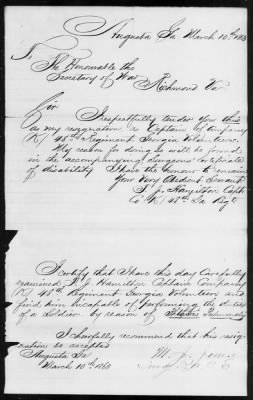 Augusta Ga March 10th 1863
To
The Honourable the
Secretary of War
Richmond Va
Sir
I respectfully tender you this
as my resignation as Captain of Company
(K) 48th Regiment Georgia Volunteers.
My reason for doing so will be found
in the accompanying Surgeons certificate
of disability. I have the honour to remain
Your Very Obedient Servant
T. J. Hamilton Capt
Co (K) 48th Ga Regt
I certify that I have this day Carefully
examined T. J. Hamilton Captain Company
(K) 48th Regiment Georgia Volunteers and
find him incapable of performing the duties
of a Soldier by reason of
I hereby recommend that his resig-
nation be accepted
Augusta Ga
March 10th 1863